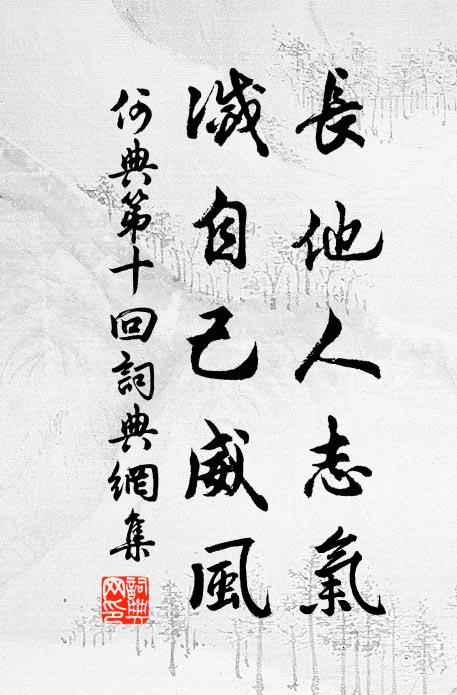 長他人志氣
滅自己威風
何典第十回詞典網集
詞典网印